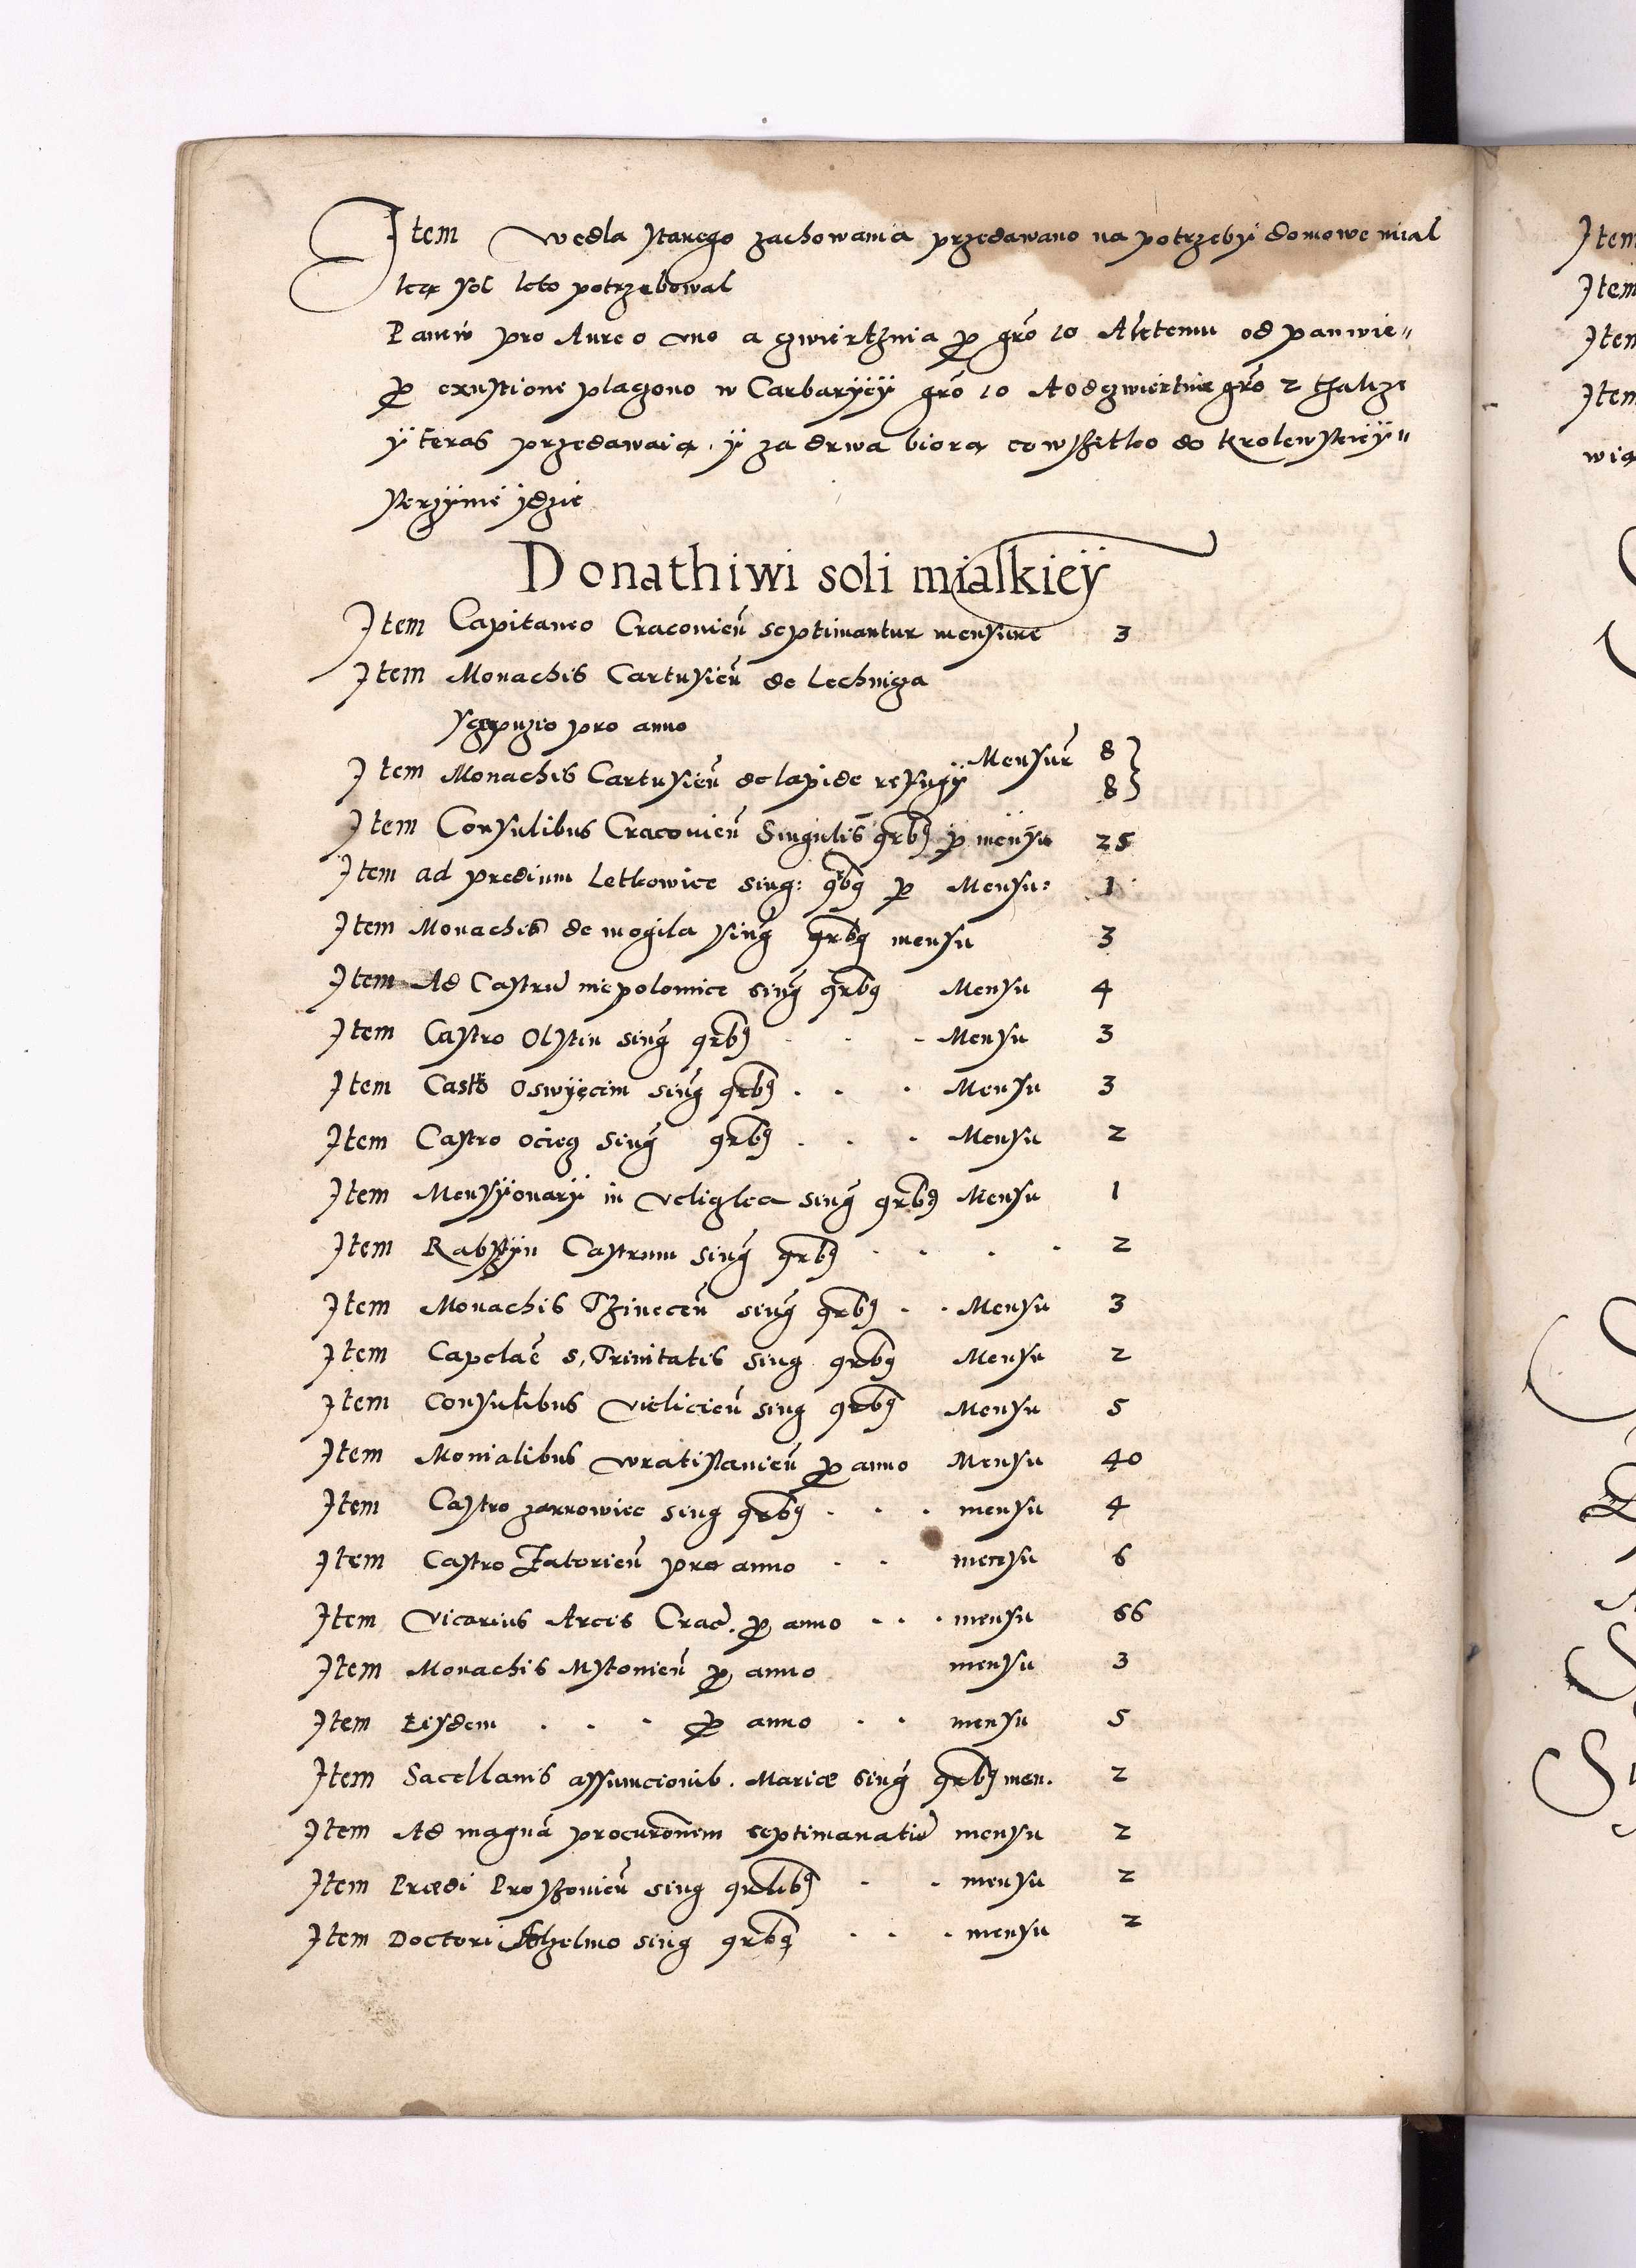 Item wedla starego zachowania przedawano na potrzeby domowe mial
ką sol kto potrzebowal
Panew pro Aureo uno a czwiertznia p gro 10 A ktemu od panwie
p exustione placzono w Carbaryey gro 10 A od czwiertnie gro 2 thakze
ÿ teras przedawaią ÿ za drwa biorą co wszitko do krolewskieÿ
skrzÿnie ÿdzie
Donathiwi soli mialkieÿ
Item Capitaneo Cracovien septimanatur mensure 3
Item Monachis Cartusien de Lechnicza
pro anno Mensur 8
Item Monachis Cartusien de lapide refugÿ 8
Item Consulibus Cracovien Singulis qrbq p mensu 25
Item ad predium Letkowice sing: qrbq p Mensu: 1
Item Monachis de mogila sing qrbq mensu 3
Item Ad Castru niepolomice sing qrbq Mensu 4
Item Castro Olstin sing qrbq Mensu 3
Item Castro Oswÿęcim sing qrbq Mensu 3
Item Castro Ociecz sing qrbq Mensu 2
Item Mensÿonarÿ in veliczka sing qrbq Mensu 1
Item Rabstÿn Castrum sing qrbq 2
Item Monachis Tzinecen sing qrbq Mensu 3
Item Capelae S. Trinitatis sing qrbq Mensu 2
Item Consulibus Vielicien sing qrbq Mensu 5
Item Monialibus wratislavien p anno Mensu 40
Item Castro zarnowiec sing qrbq mensu 4
Item Castro Zatorien pro anno mensu 6
Item Vicarius Arcis Crac. p anno mensu 66
Item Monachis Mstovien p anno mensu 3
Item Eisdem p anno mensu 5
Item Sacellanis assumcionib. Mariæ sing qrbq men. 2
Item Ad magna procuronem septimanatim mensu 2
Item Prædi Proszovien sing qrlibq mensu 2
Item Doctori sing qrbq mensu 2
Item
Item
Item
Item
wią